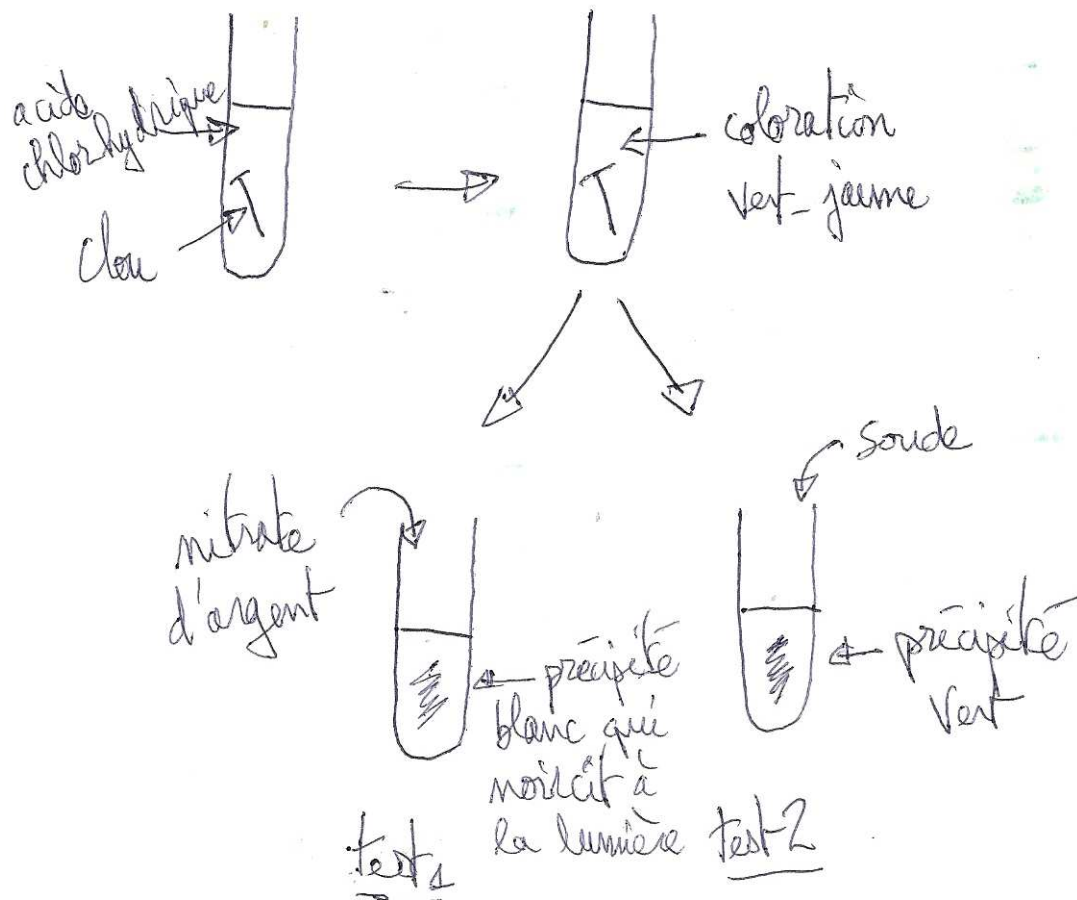 acide
chlorhydrique
clou
coloration
vert-jaune
nitrate
d'argent
soude
précipité
blanc qui
noircit à
la lumière
précipité
vert
test 1
test 2